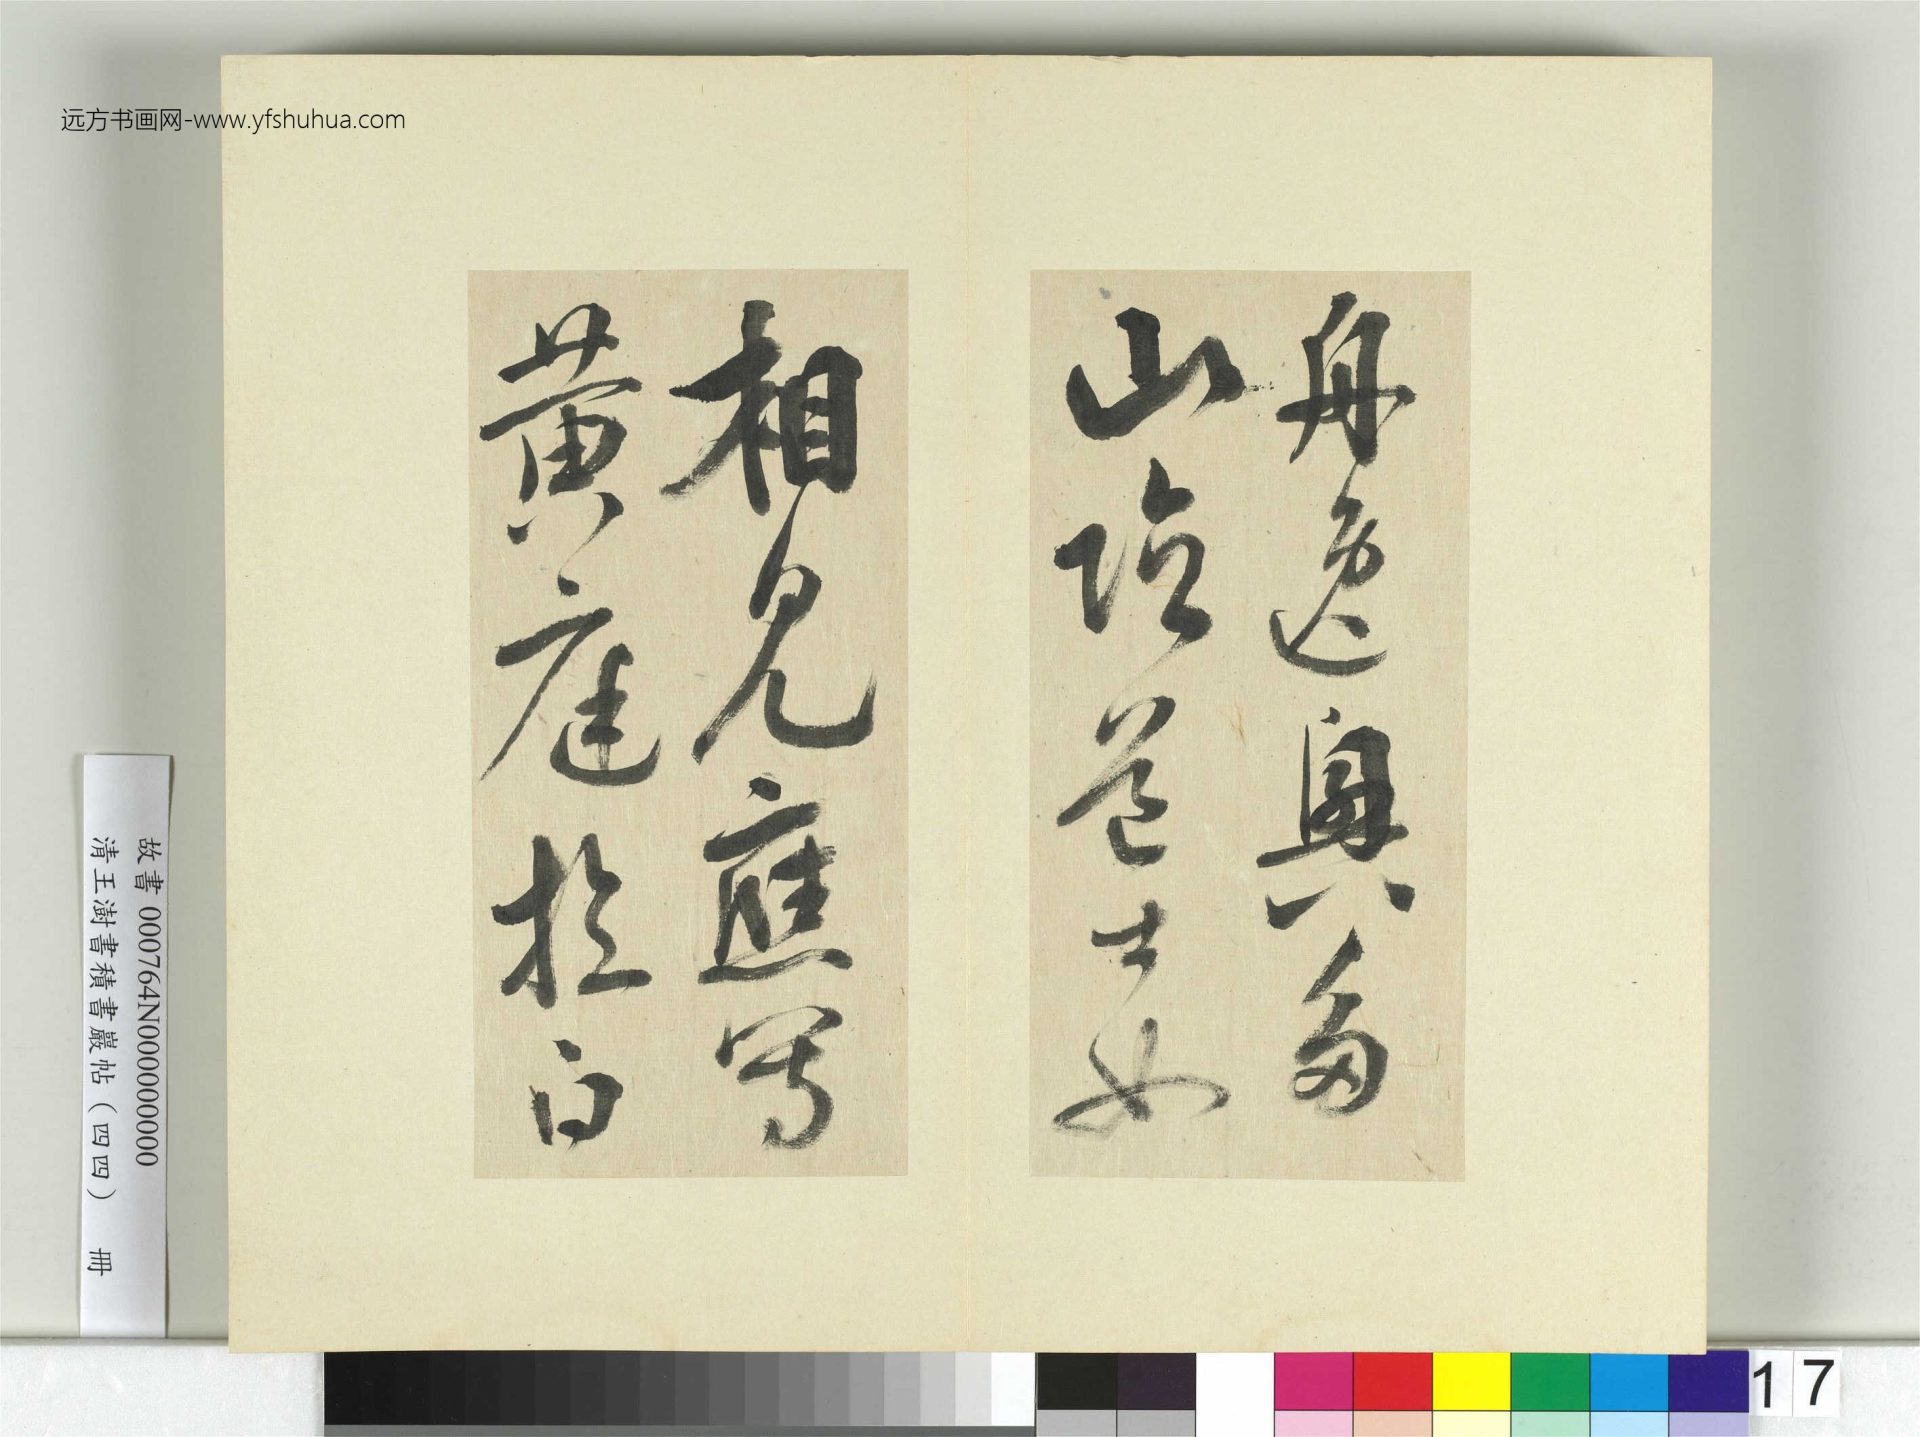 远方书画网-www.yfshuhua.com
舟逸興多
山陰道士如
相見應寫
黄庭換白
故書 000764N000000000
清王澍書積書巖帖（四四） 冊
17